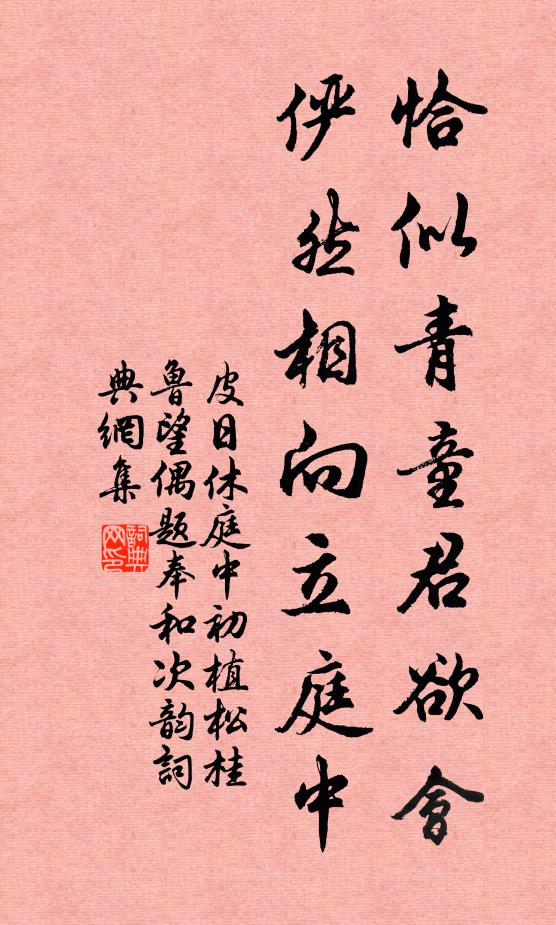 恰似青童君欲會
俨然相向立庭中
皮日休庭中初植松桂
魯望偶題奉和次韵詞
典網集
詞典网印